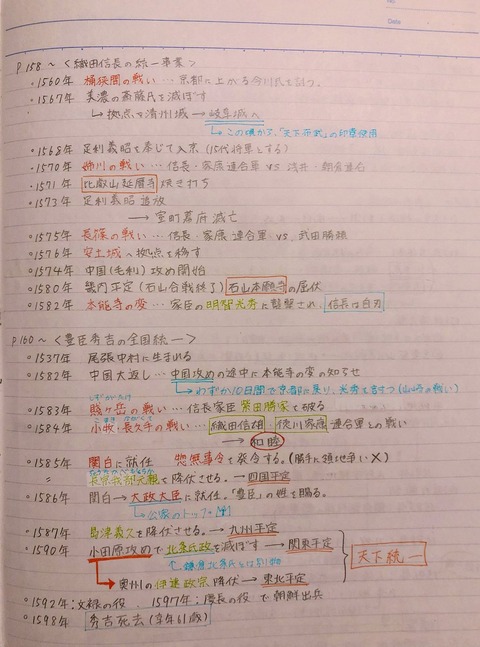 No.
Date
P 158 ~ <織田信長の統一事業>
○1560年 桶狭間の戦い … 京都に上がる今川氏を討つ。
○1567年 美濃の斎藤氏を滅ぼす
↳ 拠点を清州城 → 岐阜城へ
↳ この頃から、「天下布武」の印章使用
○1568年 足利義昭を奉じて入京 (15代将軍とする)
○1570年 姉川の戦い … 信長・家康連合軍 VS 浅井・朝倉連合
○1571年 比叡山延暦寺 焼き打ち
○1573年 足利義昭 追放
→ 室町幕府 滅亡
○1575年 長篠の戦い … 信長・家康 連合軍 vs. 武田勝頼
○1576年 安土城へ拠点を移す
○1574年 中国(毛利)攻め開始
○1580年 畿内平定 (石山合戦終了) 石山本願寺の屈伏
○1582年 本能寺の変 … 家臣の明智光秀に襲撃され、信長は自刃
P160 ~ <豊臣秀吉の全国統一>
○1537年 尾張中村に生まれる
○1582年 中国大返し … 中国攻めの途中に本能寺の変の知らせ
↳ わずか10日間で京都に戻り、光秀を討つ (山崎の戦い)
しずがたけ
○1583年 賤ヶ岳の戦い … 信長家臣 柴田勝家を破る
こまき ながくて
○1584年 小牧・長久手の戦い … 織田信雄・徳川家康 連合軍との戦い
→ 和睦
○1585年 関白に就任 惣無事令を発令する。(勝手に領地争い×)
ちょうそかべもとちか
〃 長宗我部元親を降伏させる。→ 四国平定
○1586年 関白 → 太政大臣に就任。「豊臣」の姓を賜る。
↳ 公家のトップ
○1587年 島津義久を降伏させる。→ 九州平定
○1590年 小田原攻めで北条氏政を滅ぼす → 関東平定
鎌倉北条氏とは別物
天下統一
→ 奥州の伊達政宗 降伏 → 東北平定
○1592年:文禄の役、1597年:慶長の役 で朝鮮出兵
○1598年 秀吉死去 (享年61歳)